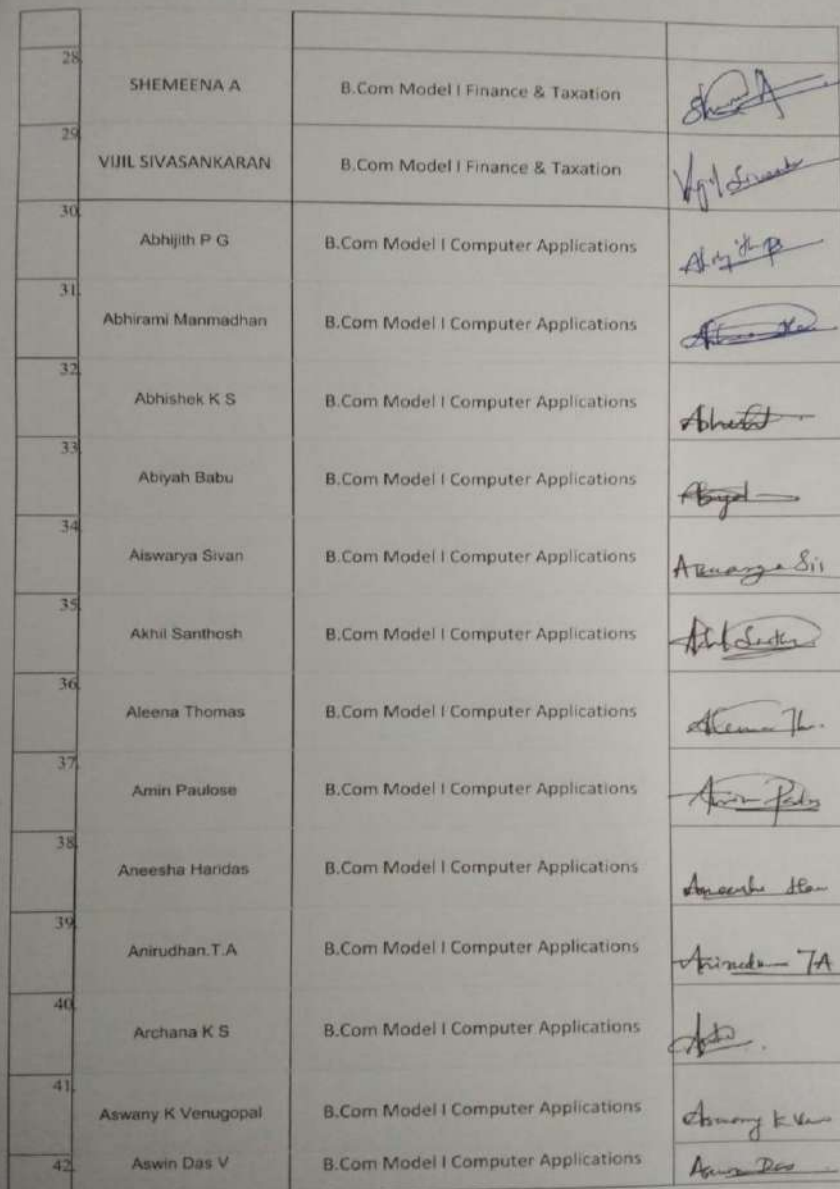 28
SHEMEENA A B.Com Model I Finance & Taxation
29
VIJIL SIVASANKARAN B.Com Model I Finance & Taxation
30.
Abhijith P G B.Com Model I Computer Applications
31.
Abhirami Manmadhan B.Com Model I Computer Applications
32.
Abhishek K S B.Com Model I Computer Applications
33.
Abiyah Babu B.Com Model I Computer Applications
34.
Aiswarya Sivan B.Com Model I Computer Applications
35.
Akhil Santhosh B.Com Model I Computer Applications
36.
Aleena Thomas B.Com Model I Computer Applications
37.
Amin Paulose B.Com Model I Computer Applications
38.
Aneesha Haridas B.Com Model I Computer Applications
39.
Anirudhan.T.A B.Com Model I Computer Applications
40.
Archana K S B.Com Model I Computer Applications
41.
Aswany K Venugopal B.Com Model I Computer Applications
42. Aswin Das V B.Com Model I Computer Applications